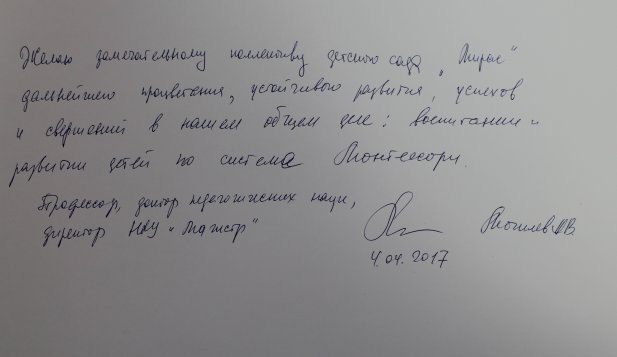 Желаю замечательному коллективу детского сада „Мирас"
дальнейшего процветания, устойчивого развития, успехов
и свершений в нашем общем деле: воспитании и
развитии детей по система Монтессори.
Профессор, доктор педагогических наук,
директор НОУ „Магистр"
4.04.2017